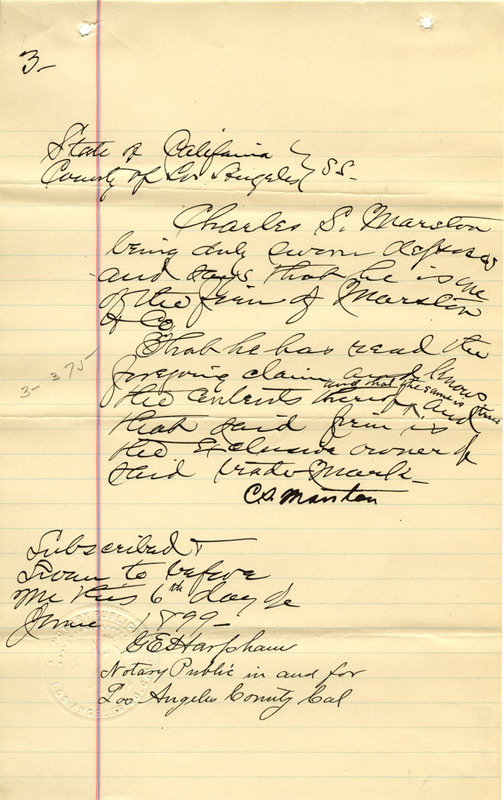 3-
State of California } SS-
County of Los Angeles
Charles S. Marston
being duly sworn deposes
and says that he is one
of the firm of Marston
& Co
That he has read the
foregoing claim and knows
and that the same is true
the contents thereof ^ and
that said firm is
the exclusive owner of
said trade-mark-
C.S. Marston
3- 375
Subscribed &
Sworn to before
me this 6th day of
June 1899-
G E Harpham
Notary Public in and for
Los Angeles County Cal